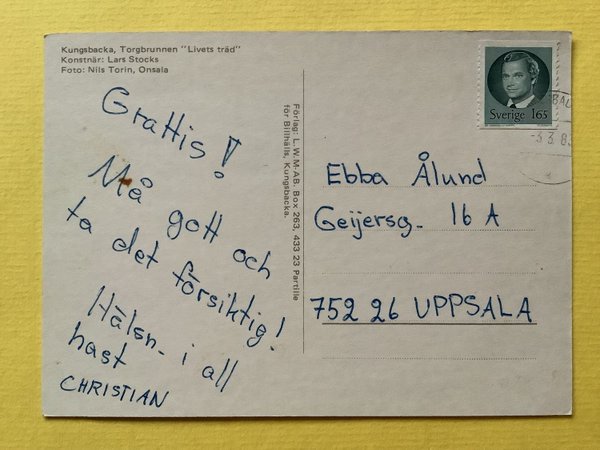 Kungsbacka, Torgbrunnen "Livets träd"
Konstnär: Lars Stocks
Foto: Nils Torin, Onsala
Grattis!
Må gott och
ta det försiktig!
Hälsn. i all
hast
CHRISTIAN
Förlag: L.W.M-AB. Box 263, 433 23 Partille
för Billhälls, Kungsbacka.
Sverige 165
Ebba Ålund
Geijersg. 16 A
752 26 UPPSALA